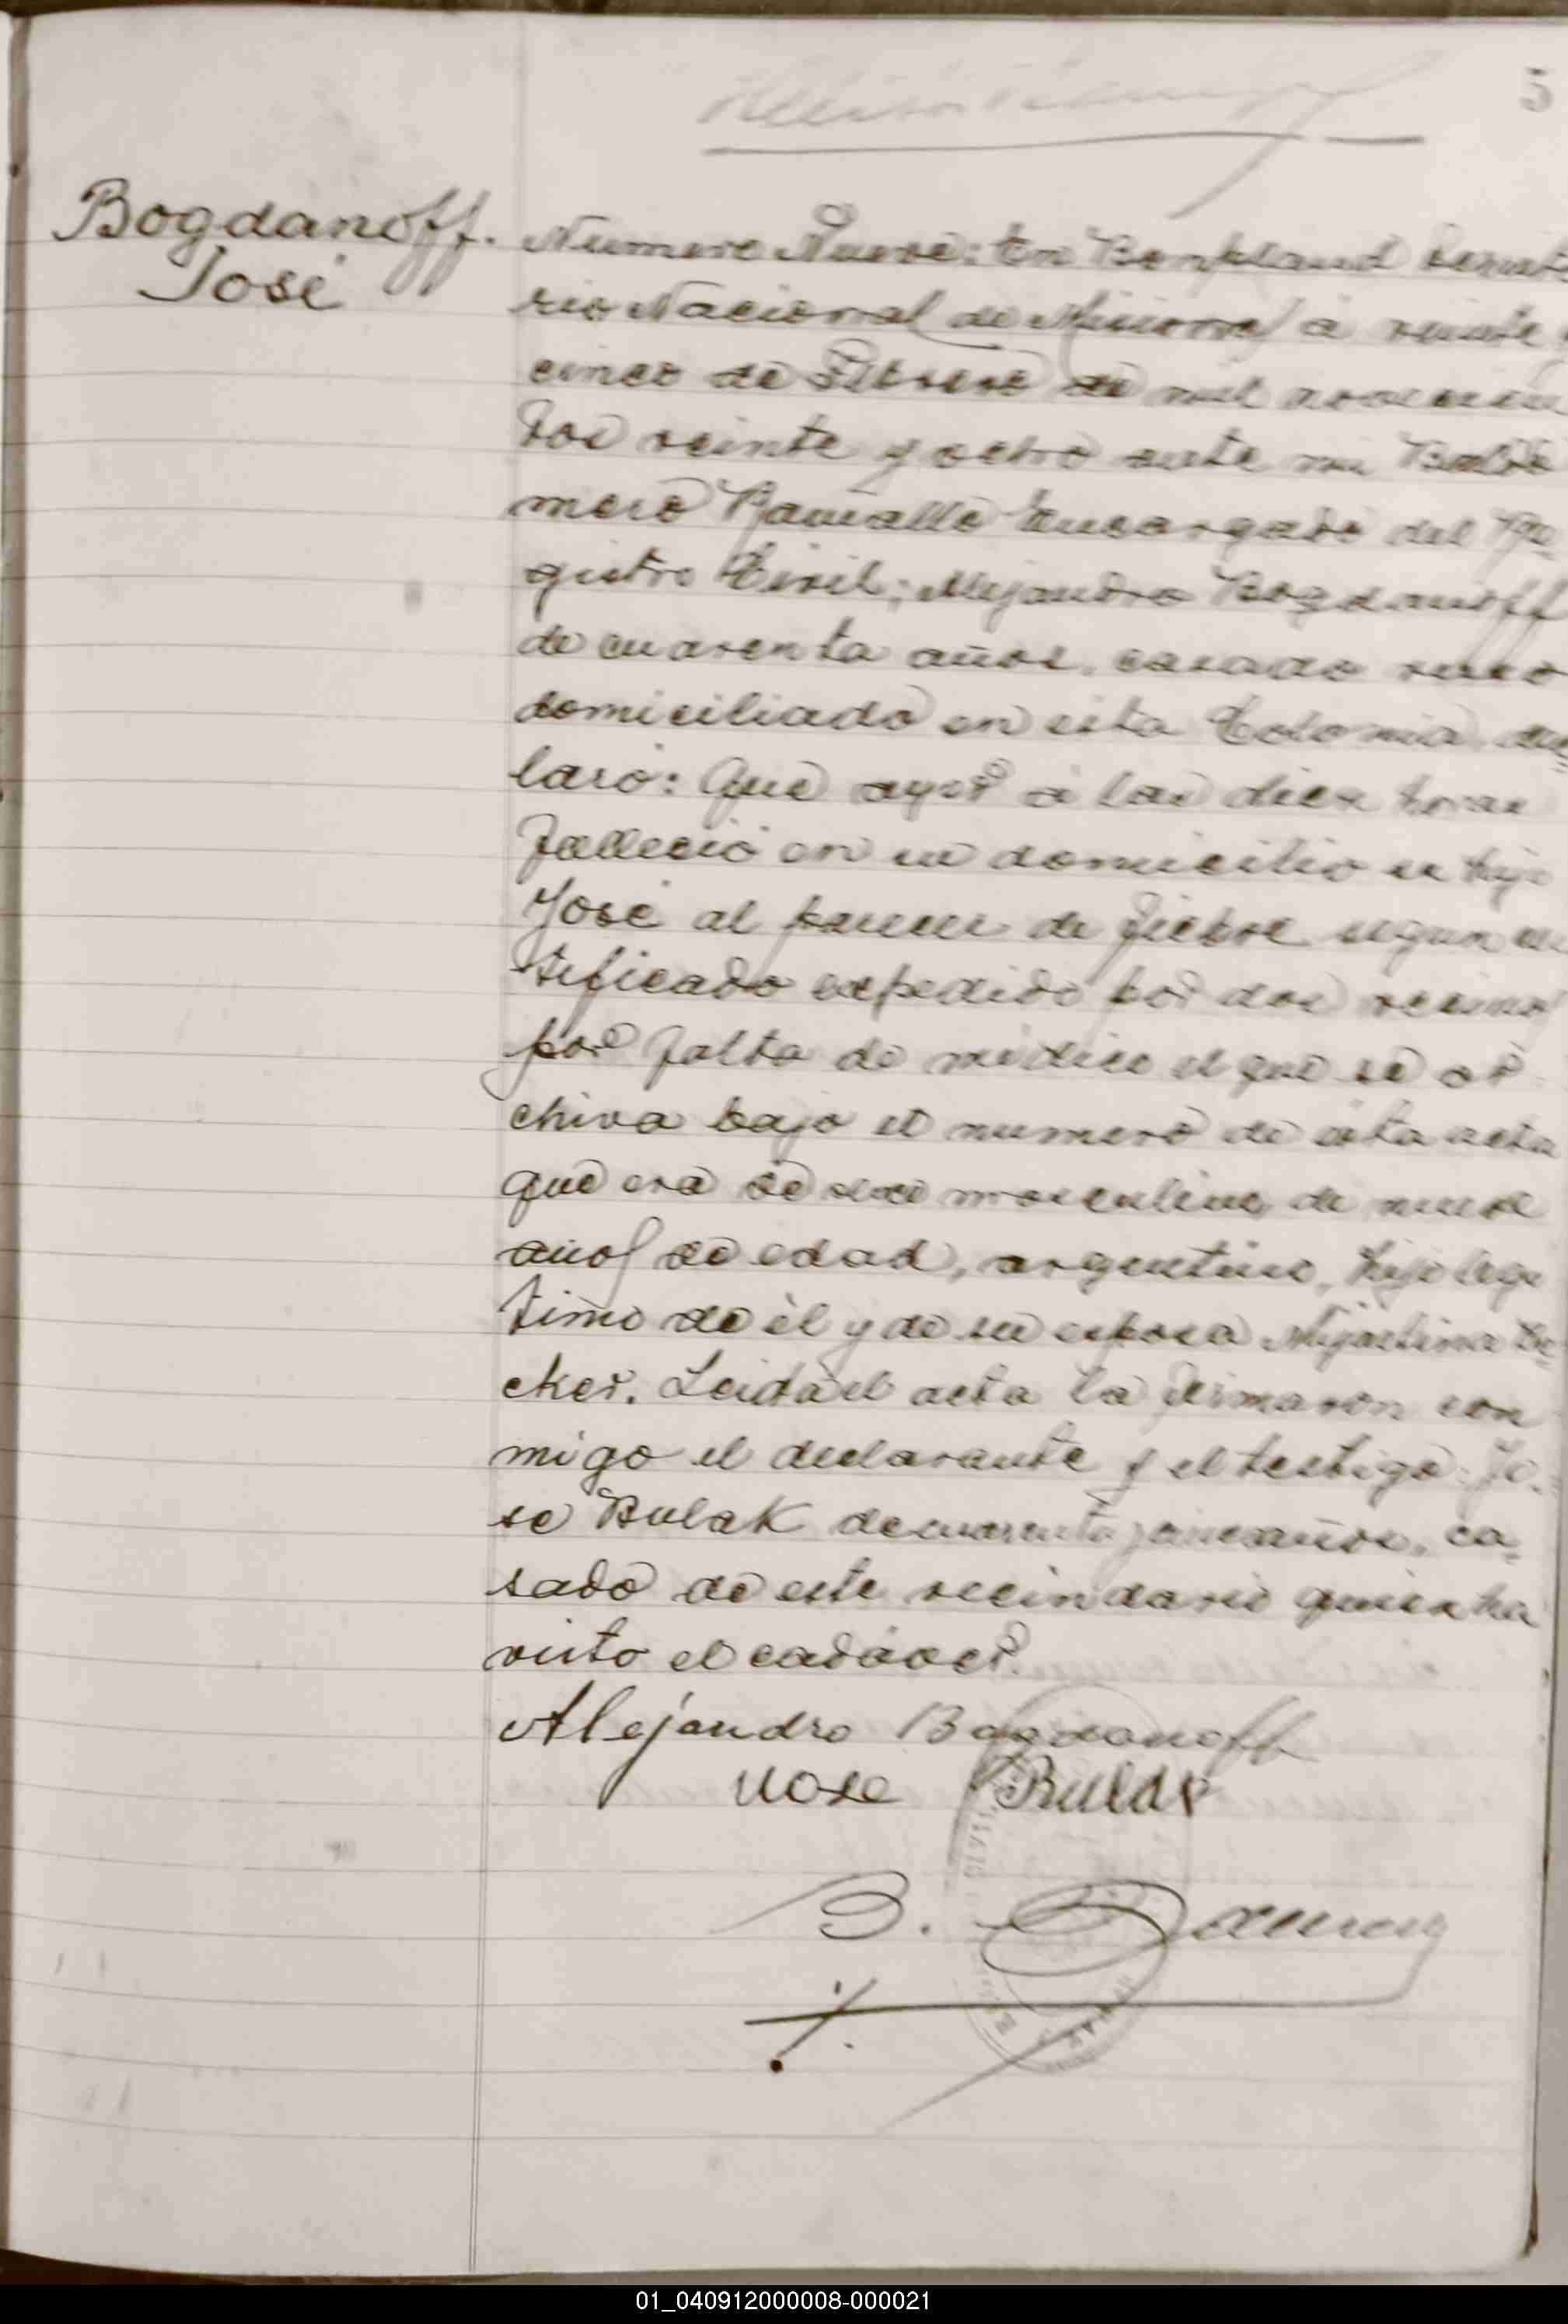 5
Bogdanoff.
José
Numero Nueve: En Bonpland Territo
rio Nacional de Misiones á veinte y
cinco de Febrero de mil novecien
tos veinte y ocho ante mi Baldo
mero Encargado del Re
gistro Civil; Alejandro Bogdanoff
de cuarenta años, casado ruso
domiciliado en esta Colonia dec
laró: Que ayer á las diez horas
falleció en su domicilio su hijo
José al parecer de fiebre segun cer
tificado expedido por dos vecinos
por falta de médico el que se ar
chiva bajo el numero de esta acta
que era de sexo masculino, de nueve
años de edad, argentino, hijo legi
timo de él y de su esposa
cker. Leida el acta la firmaron con
migo el declarante y el testigo: Jo-
se Bulak de cuarenta y cinco años, ca-
sado de este vecindario quien ha
visto el cadáver.
Alejandro Bogdanoff
Jose
B.
01_040912000008-000021